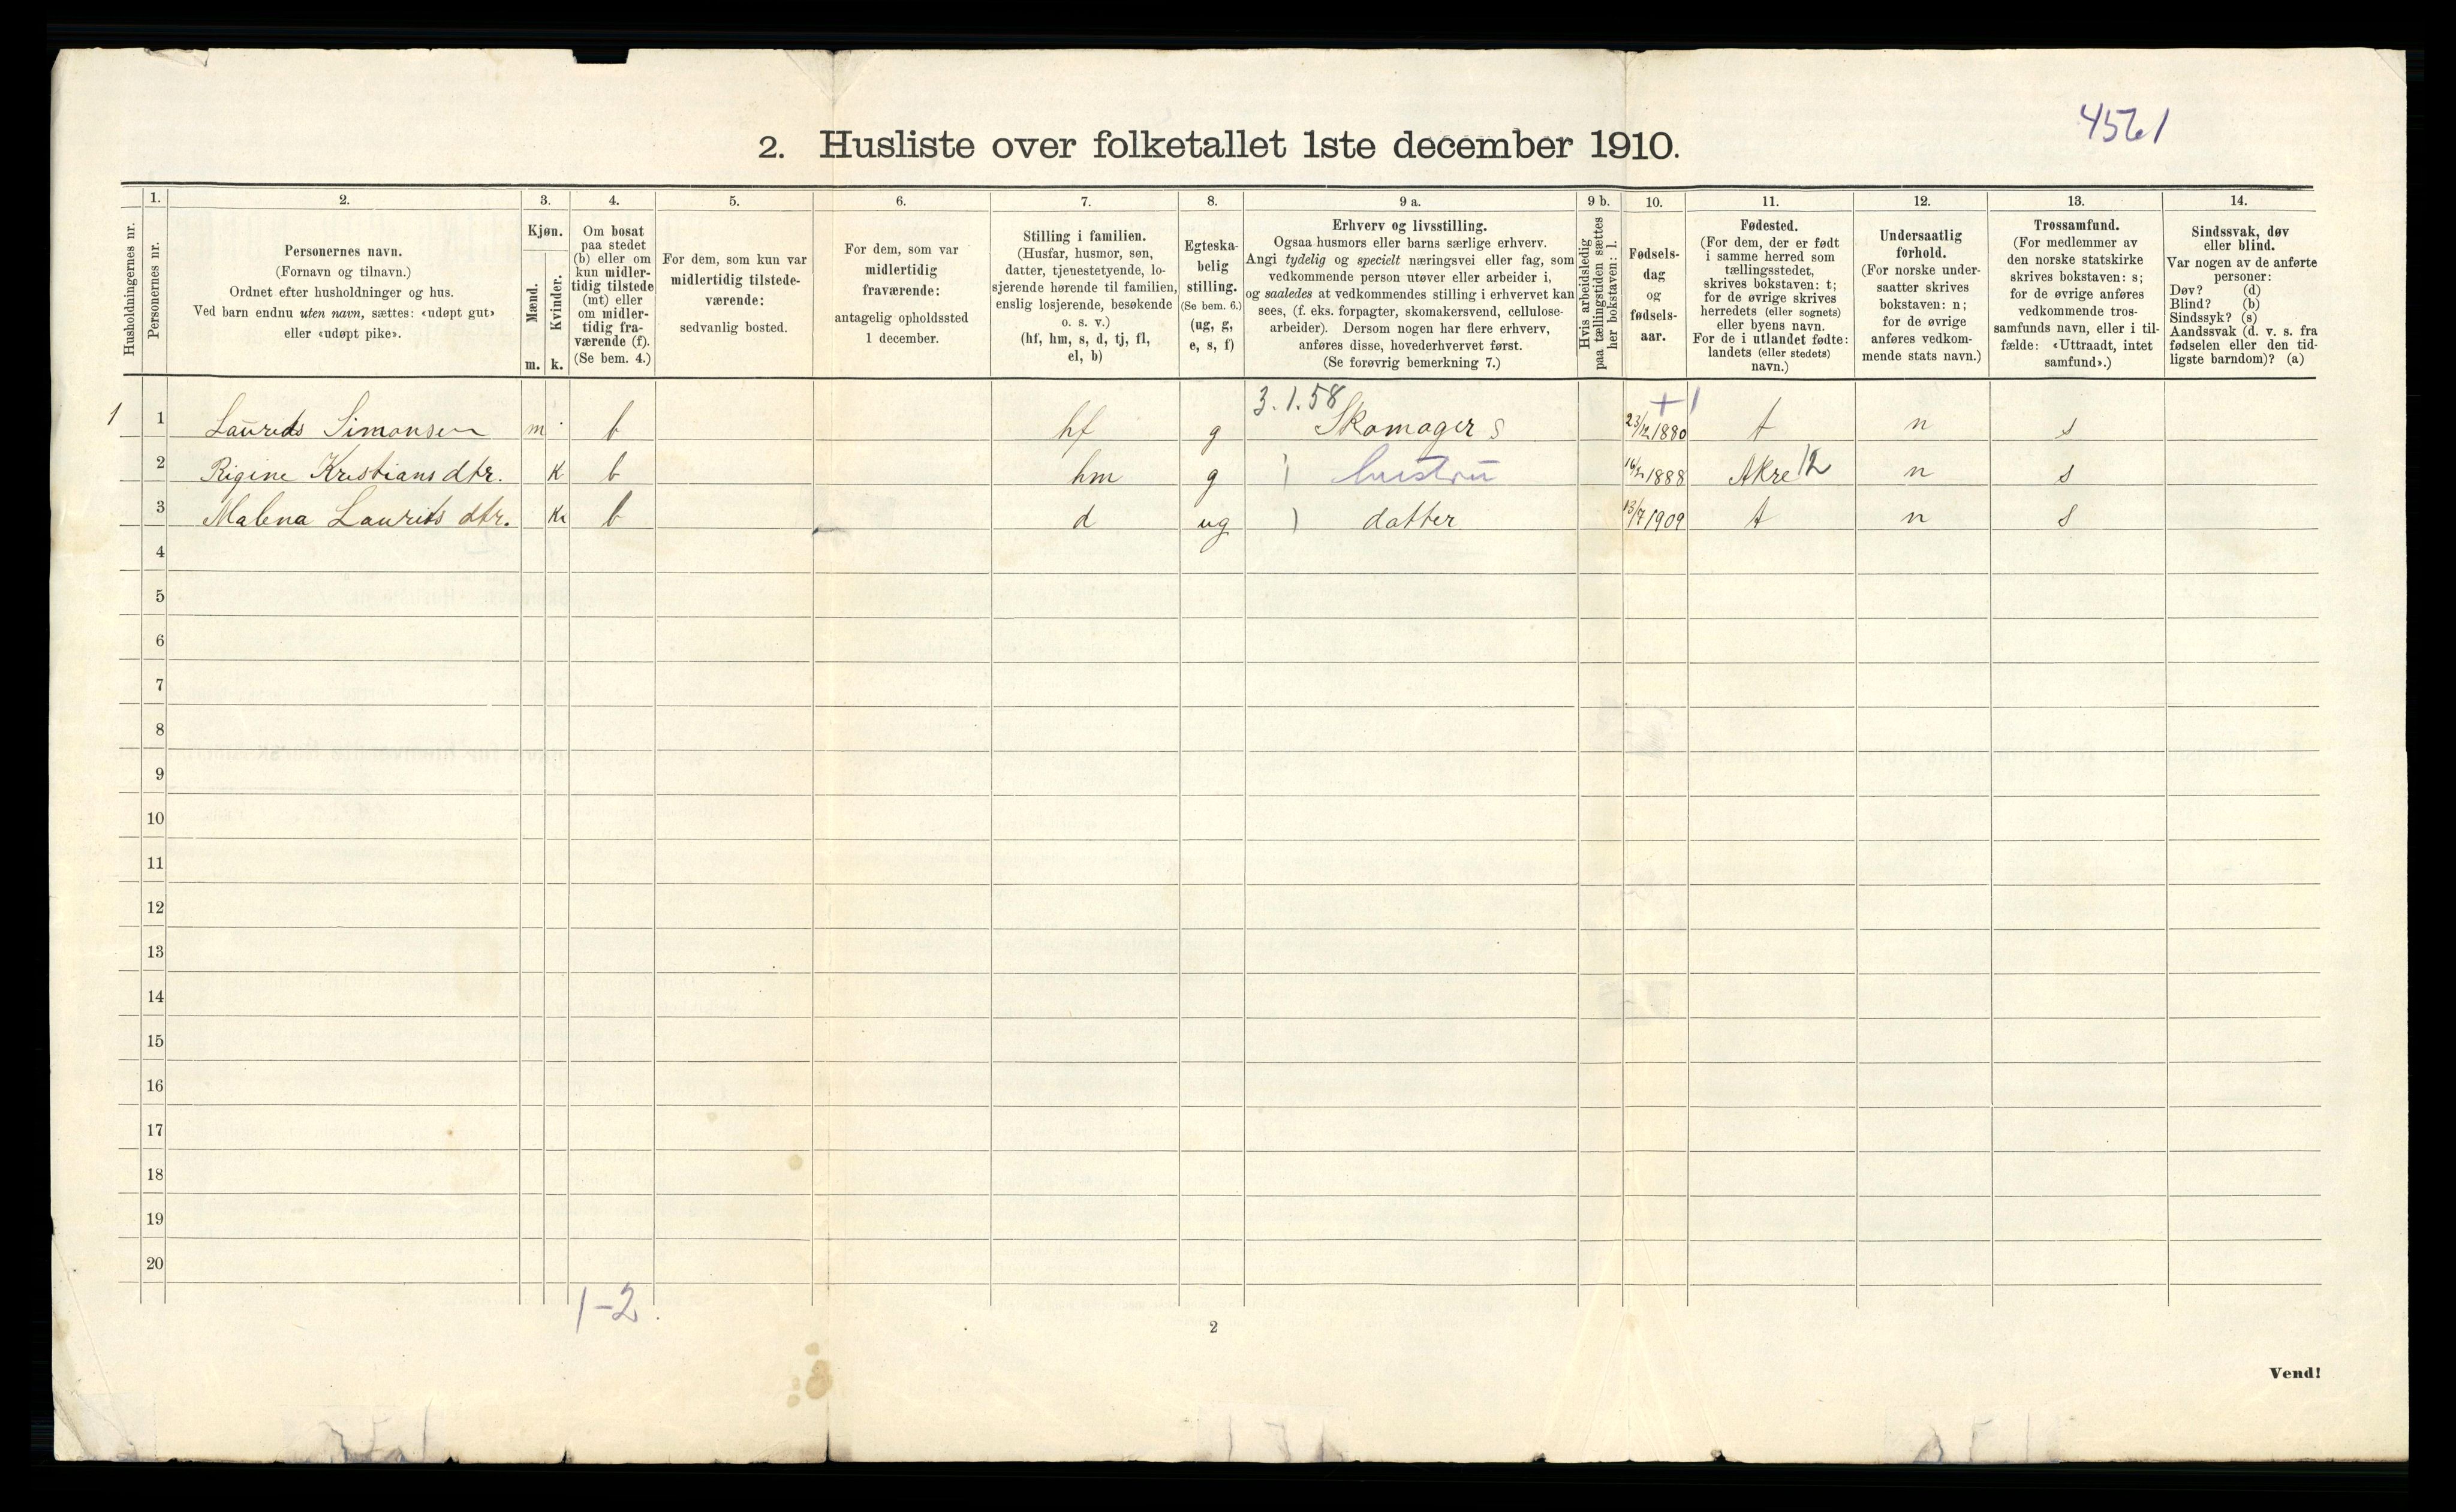 4561
2. Husliste over folketallet 1ste december 1910.
Husholdningernes nr.
1.
Personernes nr.
2.
Personernes navn.
(Fornavn og tilnavn.)
Ordnet efter husholdninger og hus.
Ved barn endnu uten navn, sættes: «udøpt gut»
eller «udøpt pike».
3.
Kjøn.
Mænd.
Kvinder.
m. k.
4.
Om bosat
paa stedet
(b) eller om
kun midler-
tidig tilstede
(mt) eller
om midler-
tidig fra-
værende (f).
(Se bem. 4.)
5.
For dem, som kun var
midlertidig tilstede-
værende:
sedvanlig bosted.
6.
For dem, som var
midlertidig
fraværende:
antagelig opholdssted
1 december.
7.
Stilling i familien.
(Husfar, husmor, søn,
datter, tjenestetyende, lo-
sjerende hørende til familien,
enslig losjerende, besøkende
o. s. v.)
(hf, hm, s, d, tj, fl,
el, b)
8.
Egteska-
belig
stilling.
(Se bem. 6.)
(ug, g,
e, s, f)
9 a.
Erhverv og livsstilling.
Ogsaa husmors eller barns særlige erhverv.
Angi tydelig og specielt næringsvei eller fag, som
vedkommende person utøver eller arbeider i,
og saaledes at vedkommendes stilling i erhvervet kan
sees, (f. eks. forpagter, skomakersvend, cellulose-
arbeider). Dersom nogen har flere erhverv,
anføres disse, hovederhvervet først.
(Se forøvrig bemerkning 7.)
9 b.
Hvis arbeidsledig
paa tællingstiden sættes
her bokstaven: l.
10.
Fødsels-
dag
og
fødsels-
aar.
11.
Fødested.
(For dem, der er født
i samme herred som
tællingsstedet,
skrives bokstaven: t;
for de øvrige skrives
herredets (eller sognets)
eller byens navn.
For de i utlandet fødte:
landets (eller stedets)
navn.)
12.
Undersaatlig
forhold.
(For norske under-
saatter skrives
bokstaven: n;
for de øvrige
anføres vedkom-
mende stats navn.)
13.
Trossamfund.
(For medlemmer av
den norske statskirke
skrives bokstaven: s;
for de øvrige anføres
vedkommende tros-
samfunds navn, eller i til-
fælde: «Uttraadt, intet
samfund».)
14.
Sindssvak, døv
eller blind.
Var nogen av de anførte
personer:
Døv? (d)
Blind? (b)
Sindssyk? (s)
Aandssvak (d. v. s. fra
fødselen eller den tid-
ligste barndom)? (a)
3.1.58 +1
1 1 Laurids Simonsen m b hf g Skomager s 23/12 1880 t n s
2 Rigine Kristiansdtr. k b hm g hustru 1888 Akre 12 n s
3 Malena Laurits dtr. k b d ug datter 13/7 1909 t n s
4
5
6
7
8
9
10
11
12
13
14
15
16
17
18
19
20
1-2
2
Vend!